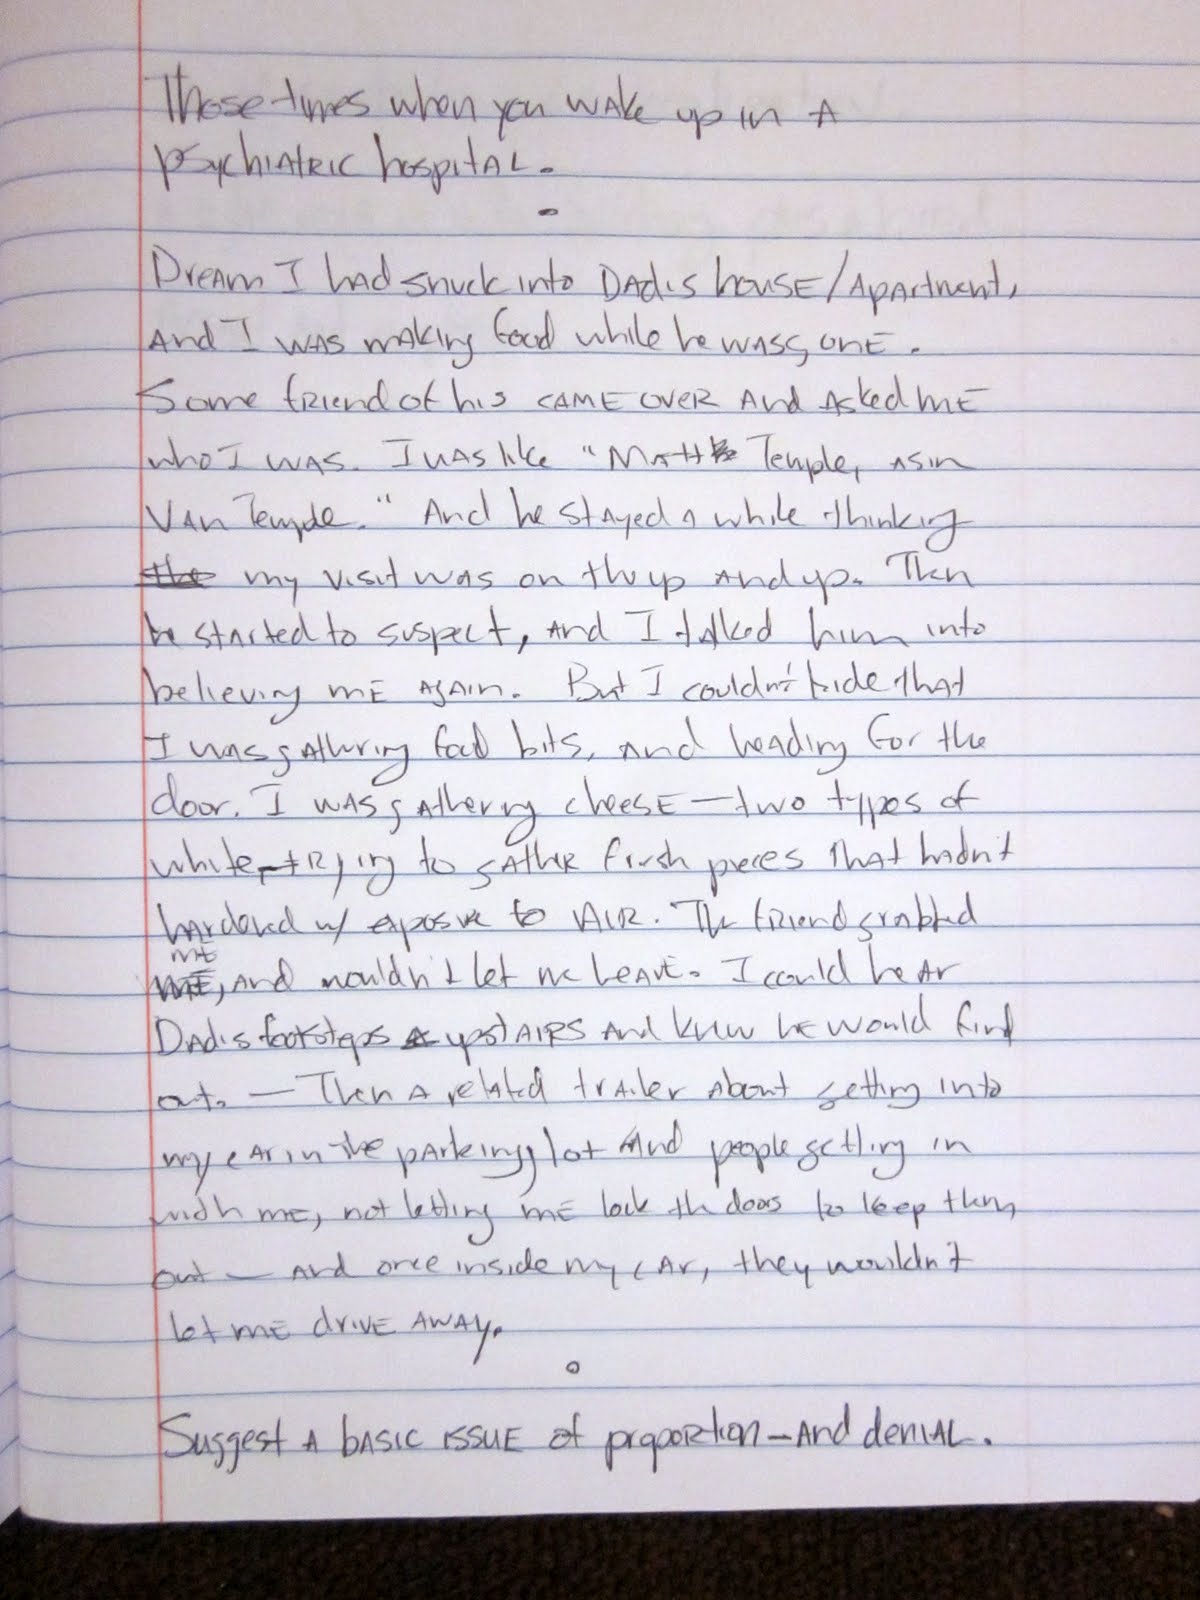 Those times when you wake up in a
psychiatric hospital.
Dream I had snuck into Dad's house/apartment,
and I was making food while he was gone.
Some friend of his came over and asked me
who I was. I was like "Matt Temple, as in
Van Temple." And he stayed a while thinking
the my visit was on the up and up. Then
he started to suspect, and I talked him into
believing me again. But I couldn't hide that
I was gathering food bits, and heading for the
door. I was gathering cheese — two types of
white — trying to gather fresh pieces that hadn't
hardened w/ exposure to air. The friend grabbed
me
me, and wouldn't let me leave. I could hear
Dad's footsteps upstairs and knew he would find
out. — Then a related trailer about getting into
my car in the parking lot and people getting in
with me, not letting me lock the doors to keep them
out — and once inside my car, they wouldn't
let me drive away.
Suggest a basic issue of proportion — and denial.